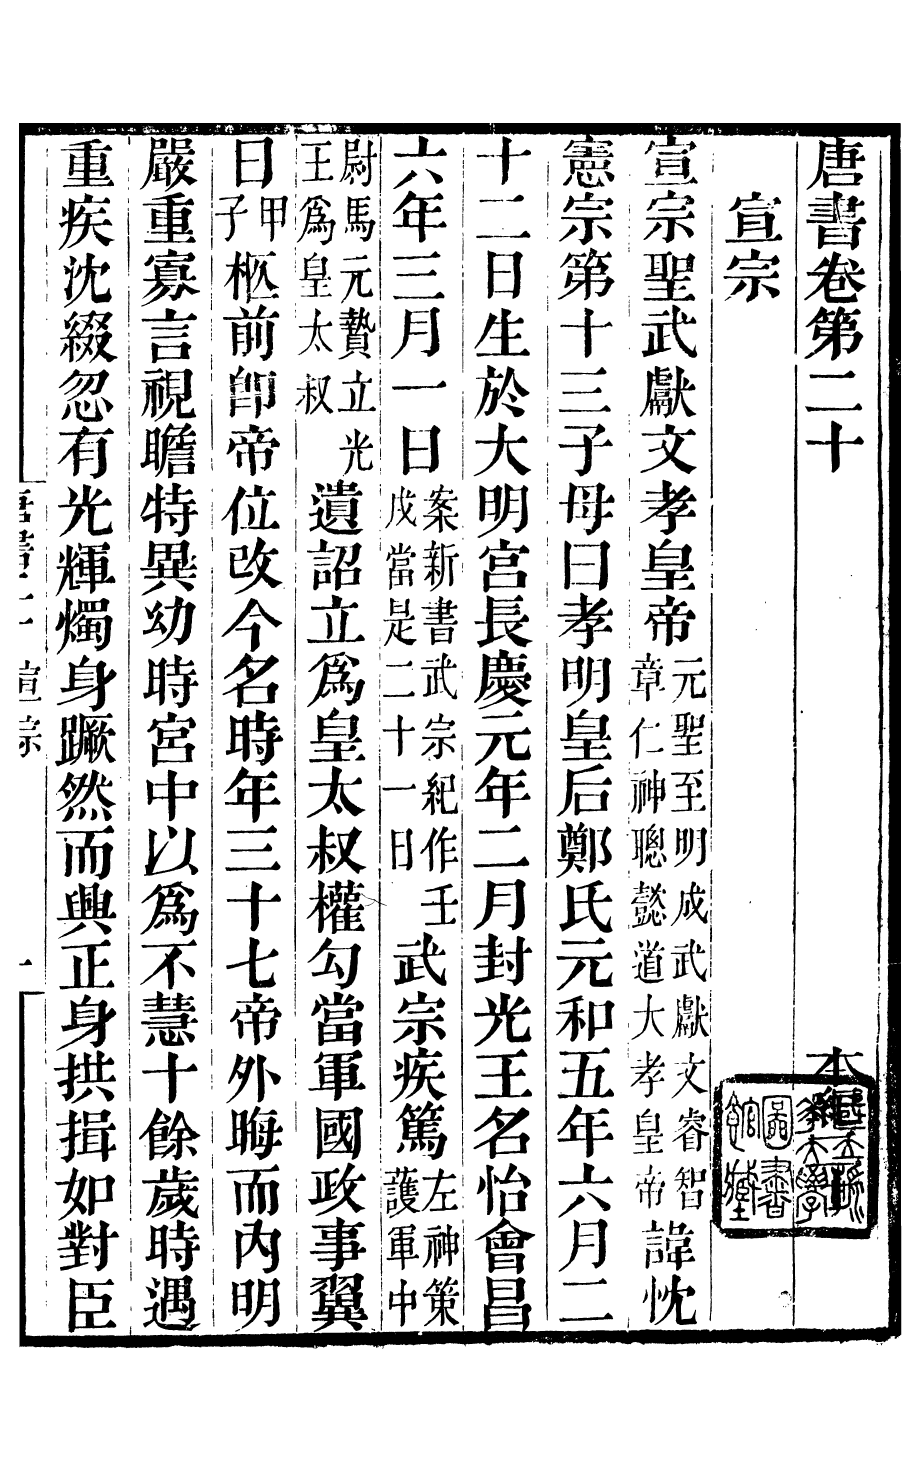 唐書卷第二十　本
宣宗
宣宗聖武獻文孝皇帝元聖至明成武獻文睿智章仁神聰懿道大孝皇帝諱忱
憲宗第十三子母曰孝明皇后鄭氏元和五年六月二
十二日生於大明宮長慶元年二月封光王名怡會昌
六年三月一日案新書武宗紀作壬戌當是二十一日武宗疾篤左神策護軍中
尉馬元贄立光王爲皇太叔遺詔立爲皇太叔權勾當軍國政事翼
日甲子柩前卽帝位改今名時年三十七帝外晦而內明
嚴重寡言視瞻特異幼時宮中以爲不慧十餘歲時遇
重疾沈綴忽有光輝燭身蹶然而興正身拱揖如對臣
宣宗　一
大學圖書館藏